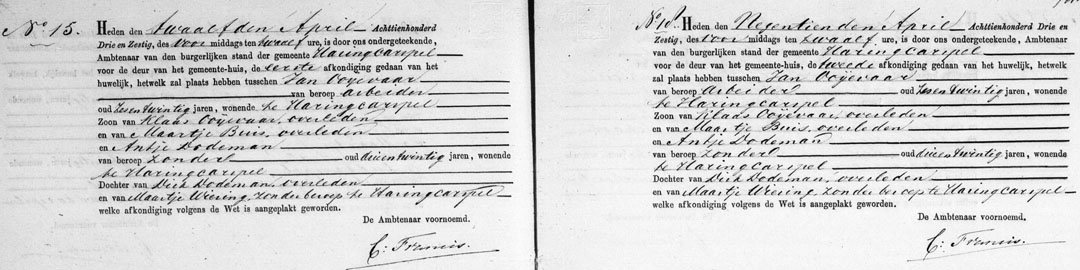 No 15. Heden den twaalfden April Achttienhonderd
Drie en Zestig, des voor middags ten twaalf ure, is door ons ondergeteekende,
Ambtenaar van den burgerlijken stand der gemeente Haringcarspel
voor de deur van het gemeente-huis, de eerste afkondiging gedaan van het
huwelijk, hetwelk zal plaats hebben tusschen Jan Ooijevaar
van beroep arbeider
oud Zesentwintig jaren, wonende te Haringcarspel
Zoon van Klaas Ooijevaar, overleden
en van Maartje Buis, overleden
en Antje Dodeman
van beroep zonder oud drieentwintig jaren, wonende
te Haringcarspel
Dochter van Dirk Dodeman, overleden
en van Maartje Wiering, zonder beroep te Haringcarspel
welke afkondiging volgens de Wet is aangeplakt geworden.
De Ambtenaar voornoemd.
C: Francis.
Heden den Negentienden April Achttienhonderd Drie
en Zestig, des voor middags ten twaalf ure, is door ons ondergeteekende, Ambtenaar
van den burgerlijken stand der gemeente Haringcarspel
voor de deur van het gemeente-huis, de tweede afkondiging gedaan van het
huwelijk, hetwelk zal plaats hebben tusschen Jan Ooijevaar
van beroep arbeider oud Zesentwintig jaren, wonende
te Haringcarspel
Zoon van Klaas Ooijevaar, overleden
en van Maartje Buis, overleden
en Antje Dodeman
van beroep zonder oud drieentwintig jaren, wonende
te Haringcarspel
Dochter van Dirk Dodeman, overleden
en van Maartje Wiering, zonder beroep te Haringcarspel
welke afkondiging volgens de Wet is aangeplakt geworden.
De Ambtenaar voornoemd.
C: Francis.